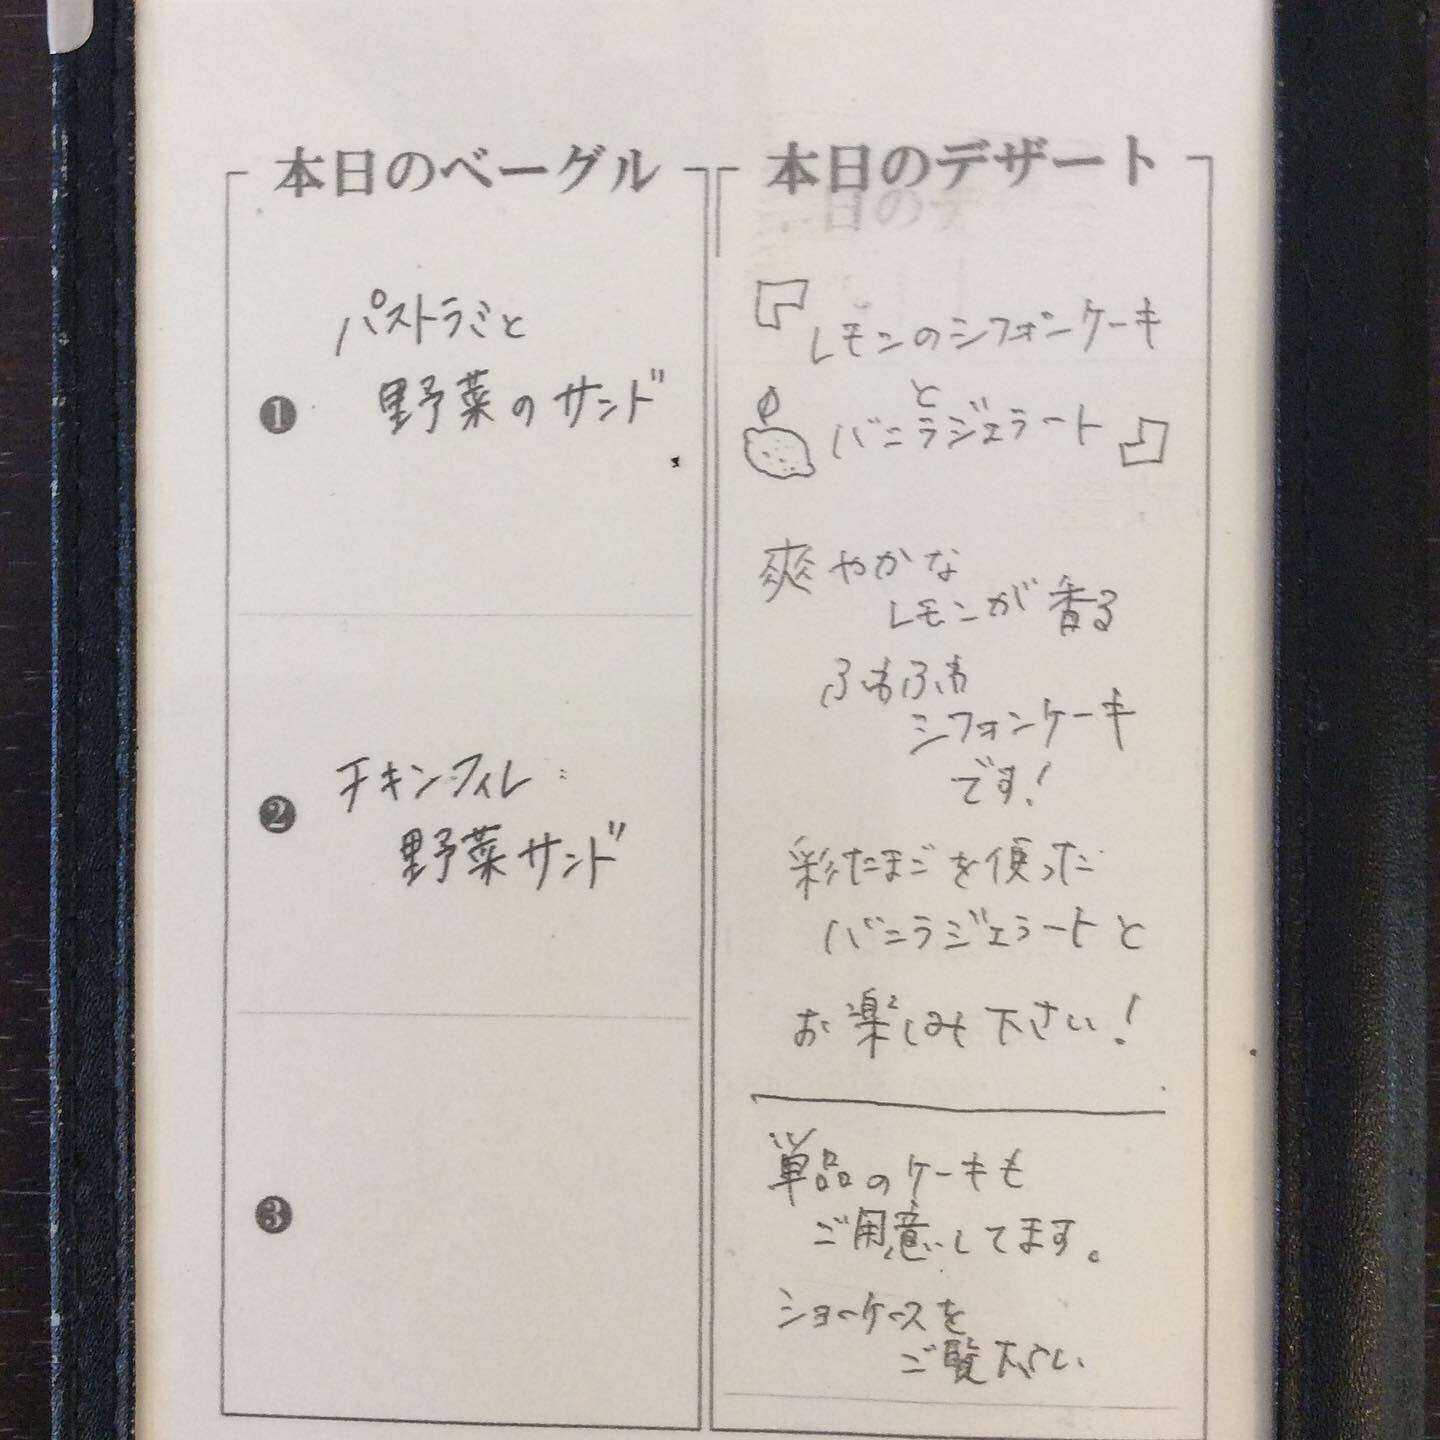 本日のベーグル
❶
パストラミと
野菜のサンド
❷
チキンフィレ
野菜サンド
❸
本日のデザート
『レモンのシフォンケーキ
と
バニラジェラート』
爽やかな
レモンが香る
ふわふわ
シフォンケーキ
です!
彩たまごを使った
バニラジェラートと
お楽しみ下さい!
単品のケーキも
ご用意してます。
ショーケースを
ご覧下さい